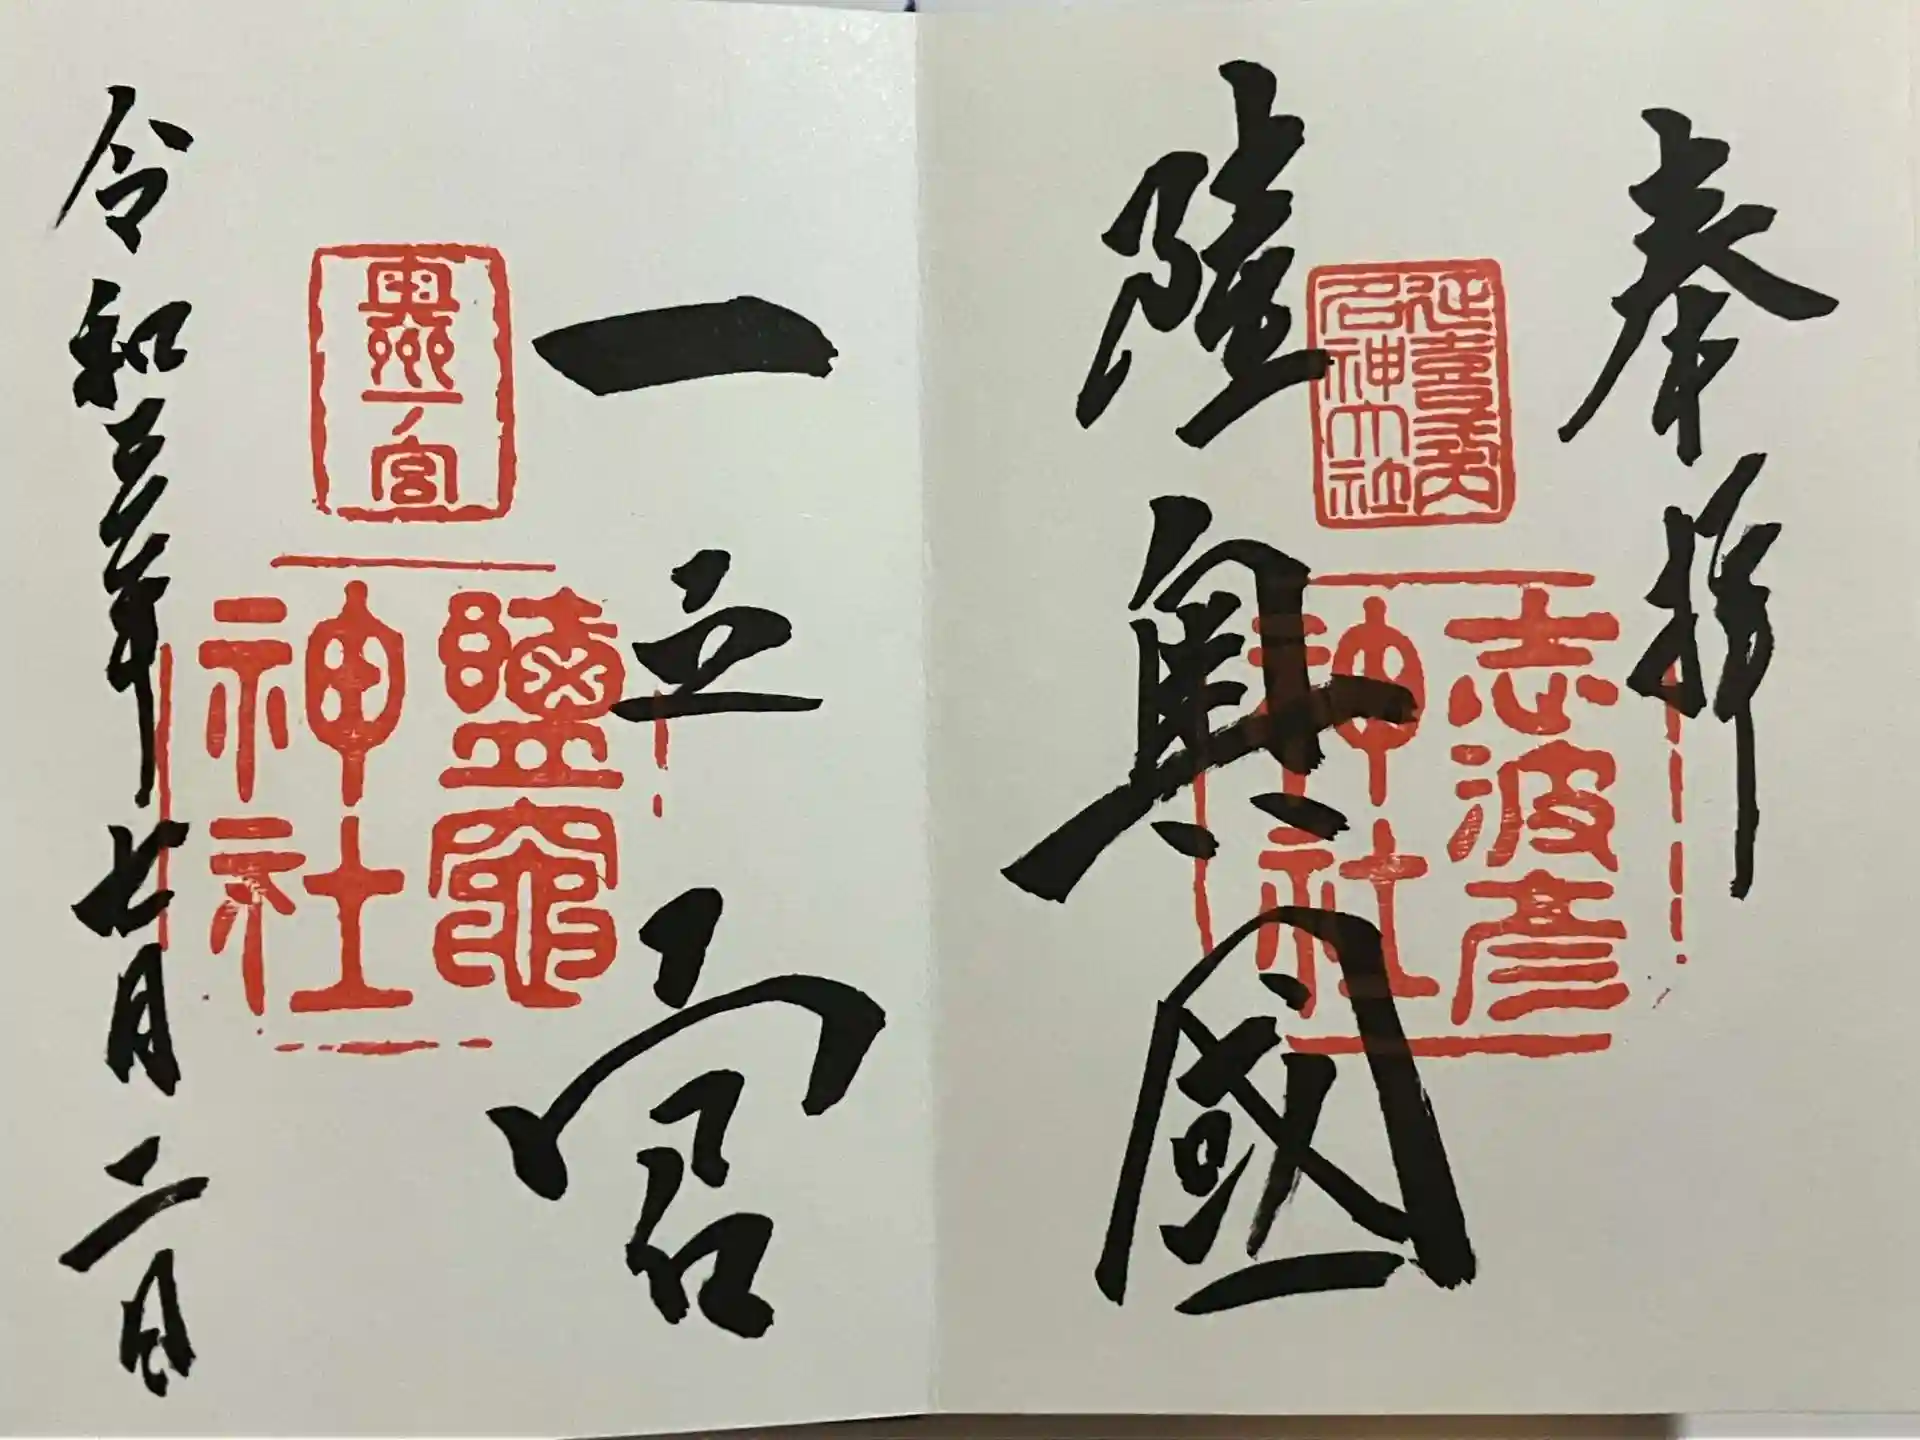 奉拝
延喜式内名神大社
志波彦神社
陸奥國
一之宮
奥州一ノ宮
鹽竈神社
令和五年七月二日